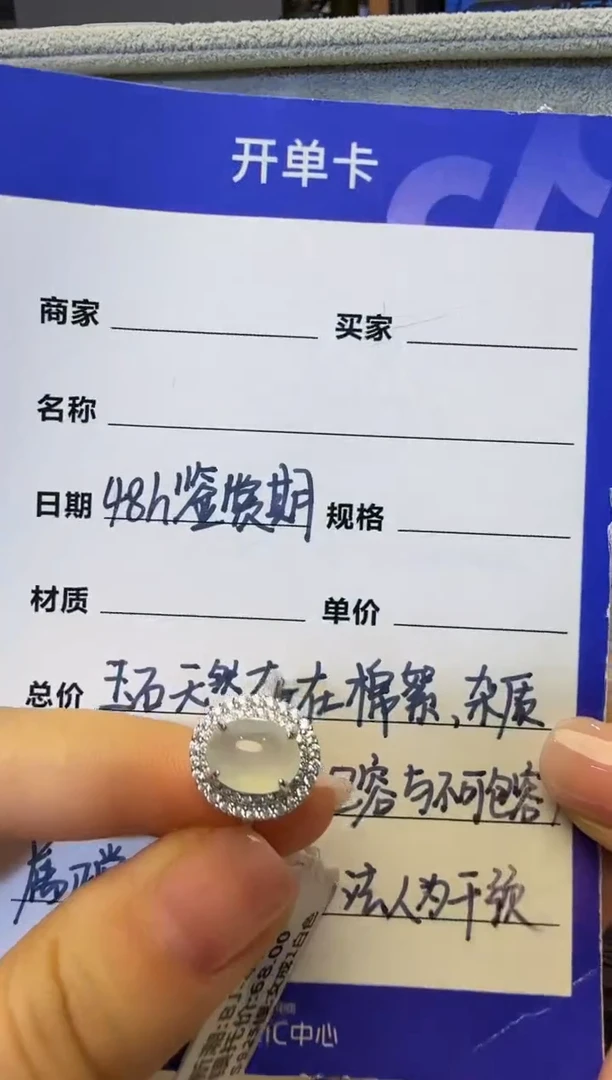 开单卡
商家 买家
名称
日期 48h鉴赏期 规格
材质 单价
总价 玉石天然存在棉絮、杂质
包容与不可包容,
属正常 法人为干预
68.00
IC中心